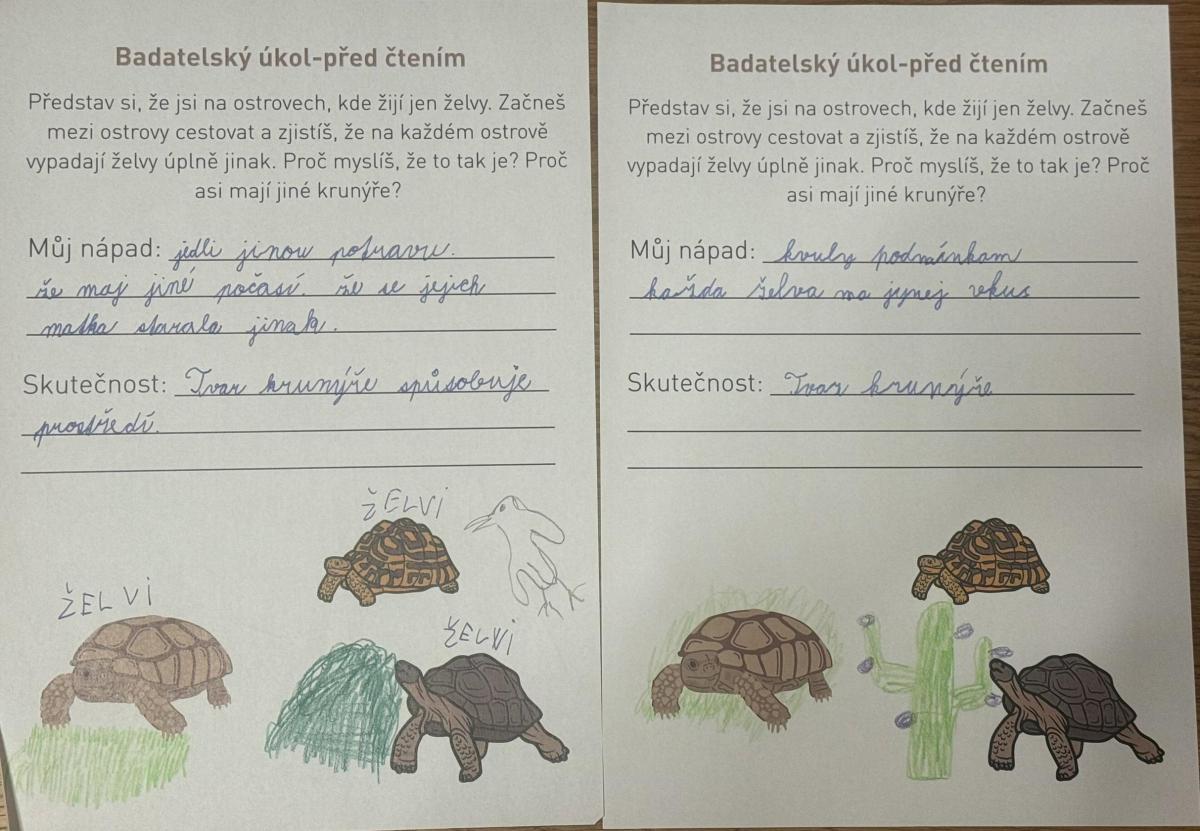 Badatelský úkol-před čtením
Představ si, že jsi na ostrovech, kde žijí jen želvy. Začneš
mezi ostrovy cestovat a zjistíš, že na každém ostrově
vypadají želvy úplně jinak. Proč myslíš, že to tak je? Proč
asi mají jiné krunýře?
Můj nápad: jedli jinou potravu.
že maj jiné počasí. že se jejich
matka starala jinak.
Skutečnost: Tvar krunýře spůsobuje
prostředí.
ŽELVI
ŽELVI
ŽELVI
Badatelský úkol-před čtením
Představ si, že jsi na ostrovech, kde žijí jen želvy. Začneš
mezi ostrovy cestovat a zjistíš, že na každém ostrově
vypadají želvy úplně jinak. Proč myslíš, že to tak je? Proč
asi mají jiné krunýře?
Můj nápad: kvuly podmínkam
každa želva ma jynej vkus
Skutečnost: Tvar krunýře